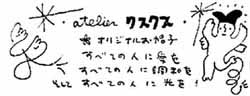 ・atelier クスクス
★オリジナルお帽子
すべての人に夢を
すべての人に調和を
そして すべての人に光を!